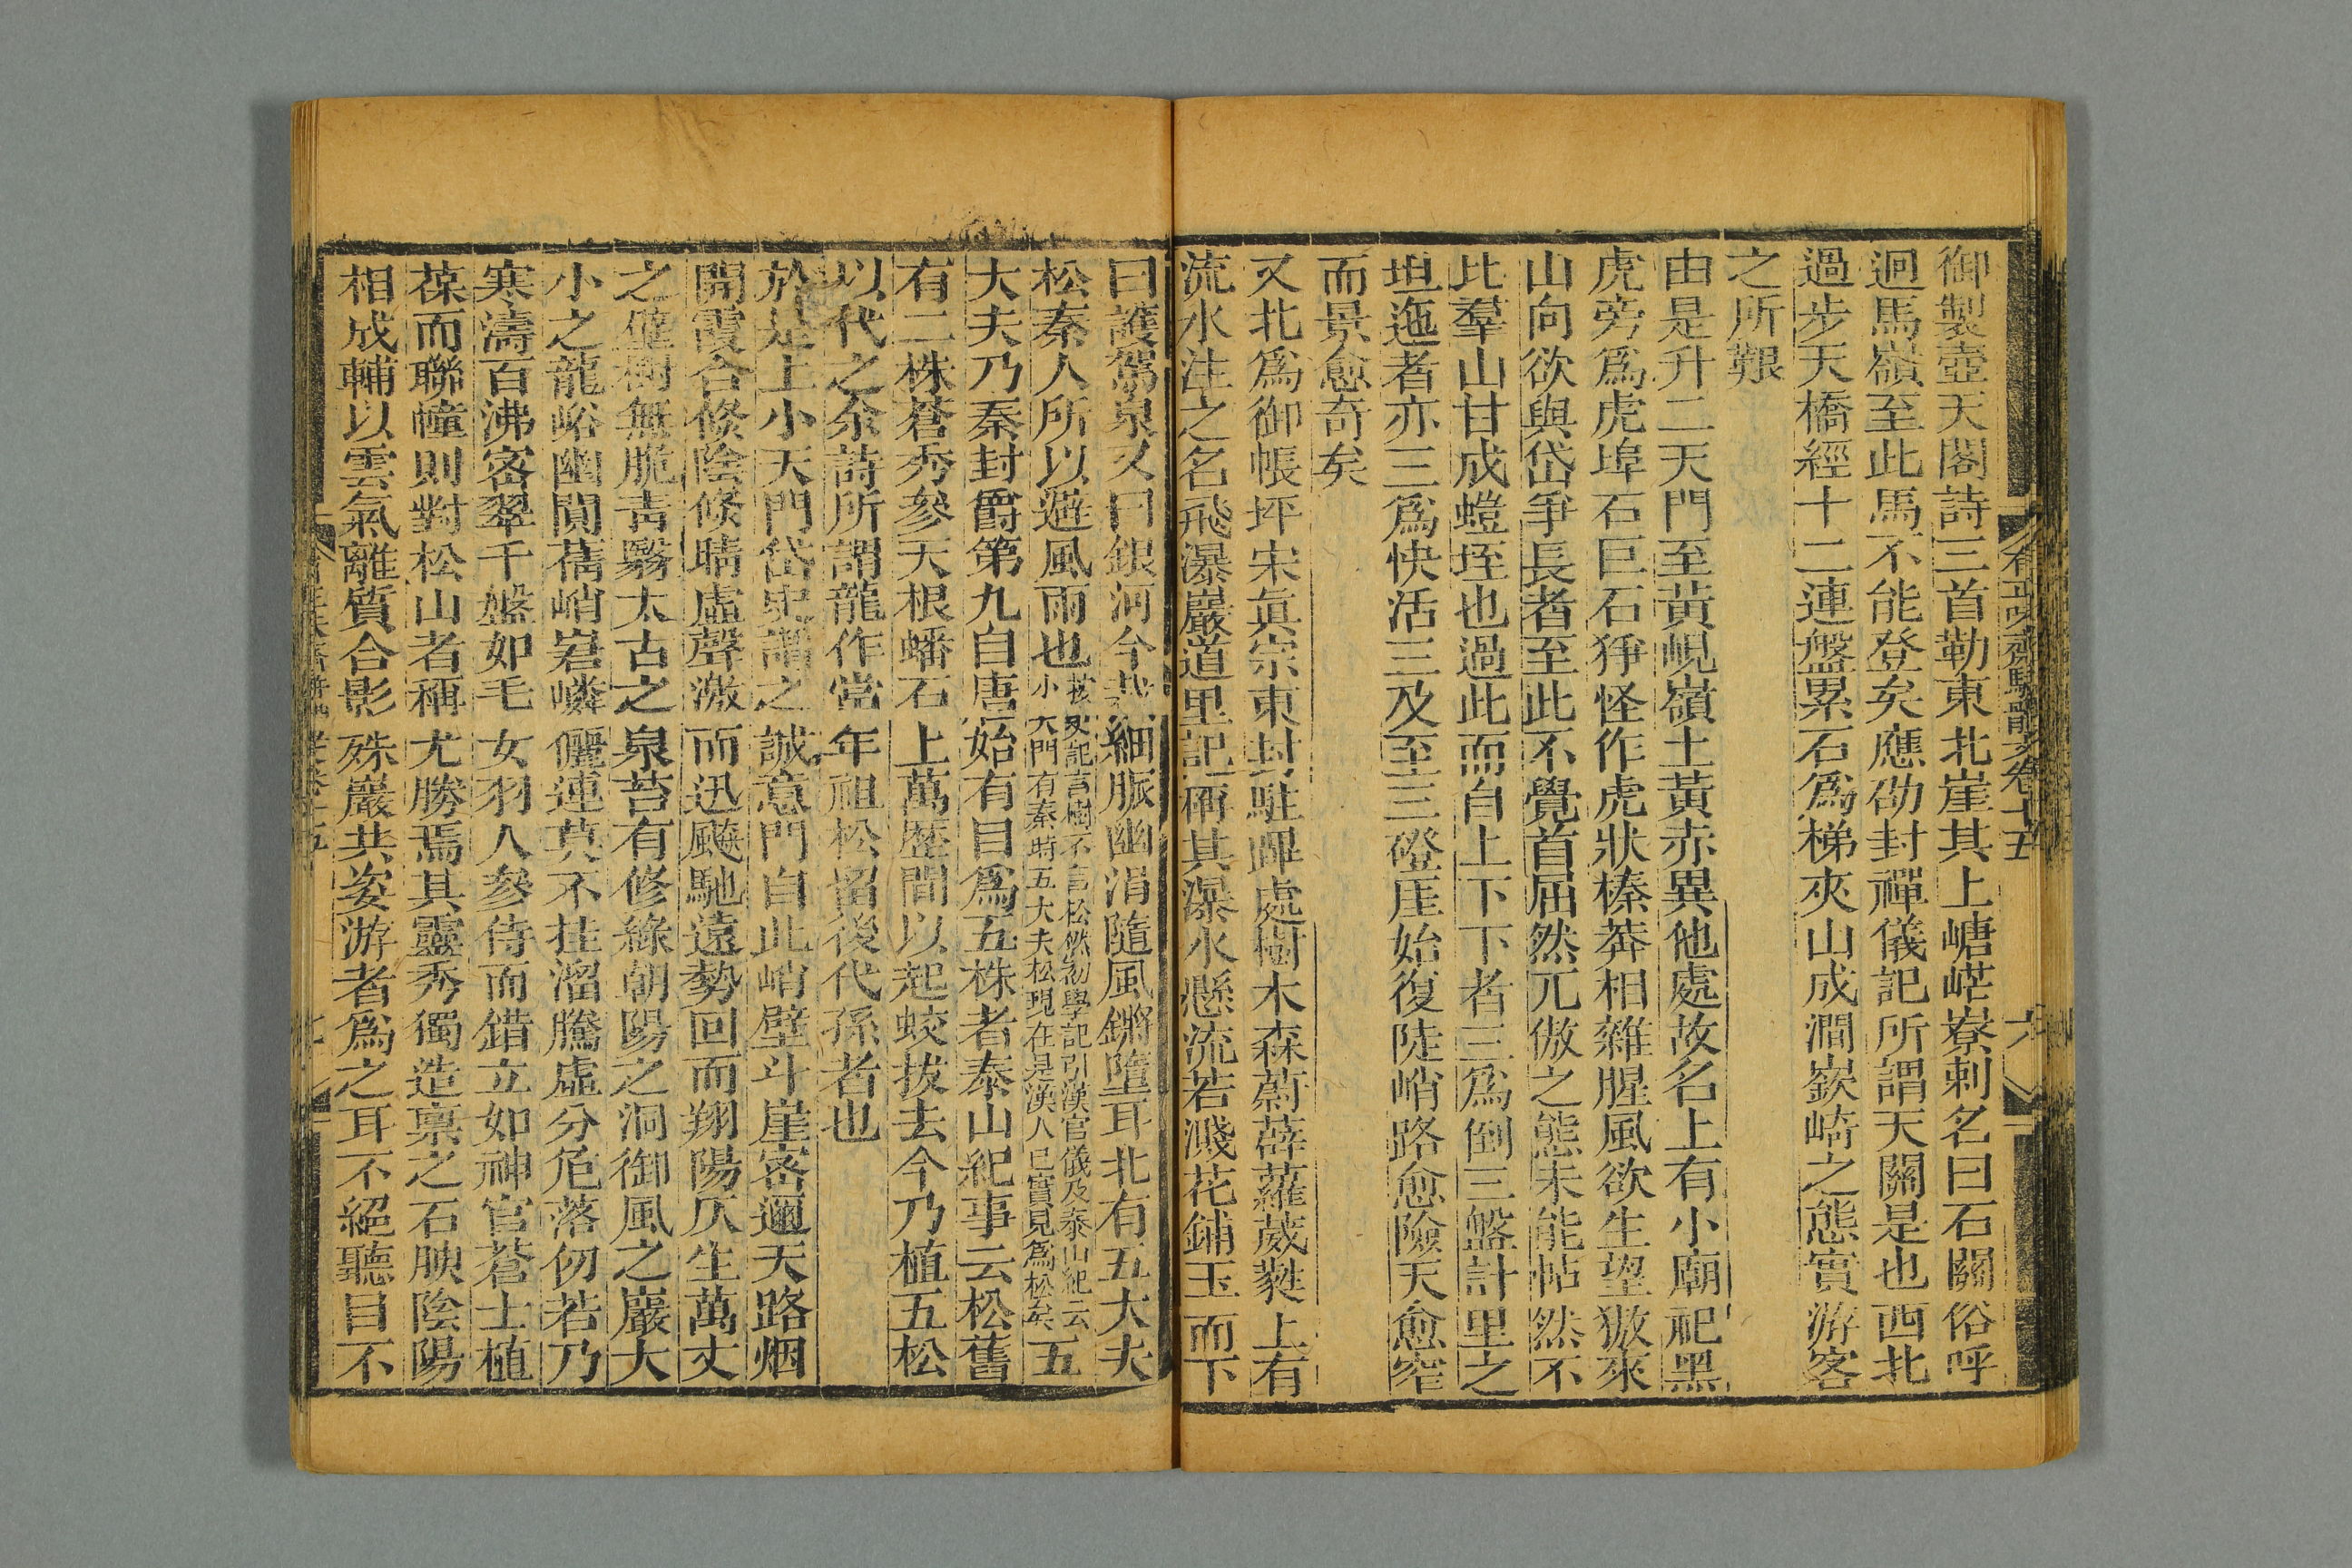 御製壺天閣詩三首勒東北崖其上嵣㟐嶚剌名曰石關俗呼
迴馬嶺至此馬不能登矣應劭封禪儀記所謂天關是也西北
過步天橋經十二連盤累石爲梯夾山成澗嶔崎之態實游客
之所艱
由是升二天門至黃峴嶺土黃赤異他處故名上有小廟祀黑
虎旁爲虎埠石巨石猙怪作虎狀榛莽相雜腥風欲生望嶽來
山向欲與岱爭長者至此不覺首屈然兀傲之態未能帖然不
此羣山甘成螘垤也過此而自上下下者三爲倒三盤計里之
坦迤者亦三爲快活三及至三磴崖始復陡峭路愈險天愈窄
而景愈奇矣
又北爲御帳坪宋眞宗東封駐蹕處樹木森蔚薜蘿葳蕤上有
流水注之名飛瀑巖道里記稱其瀑水懸流若濺花鋪玉而下
有正味齋駢體文卷十五 六
曰護駕泉又曰銀河今共細脈幽涓隨風鏘墮耳北有五大夫
松秦人所以避風雨也按史記言樹不言松然初學記引漢官儀及泰山紀云小天門有秦時五大夫松現在是漢人已實見爲松矣五
大夫乃秦封爵第九自唐始有目爲五株者泰山紀事云松舊
有二株蒼秀參天根蟠石上萬歷間以起蛟拔去今乃植五松
以代之余詩所謂龍作當年祖松留後代孫者也
於是上小天門岱史謂之誠意門自此峭壁斗崖密邇天路烟
開霞合倏陰倏晴虛聲激而迅飈馳遠勢回而翔陽仄生萬丈
之壁樹無脆靑翳太古之泉苔有修綠朝陽之洞御風之巖大
小之龍峪幽閴蒨峭岩嶙儷連莫不挂溜騰虛分危落仞若乃
寒濤百沸密翠千盤如毛女羽人參侍而錯立如神官蒼士植
葆而聯幢則對松山者稱尤勝焉其靈秀獨造稟之石腴陰陽
相成輔以雲氣離質合影殊巖共姿游者爲之耳不絕聽目不